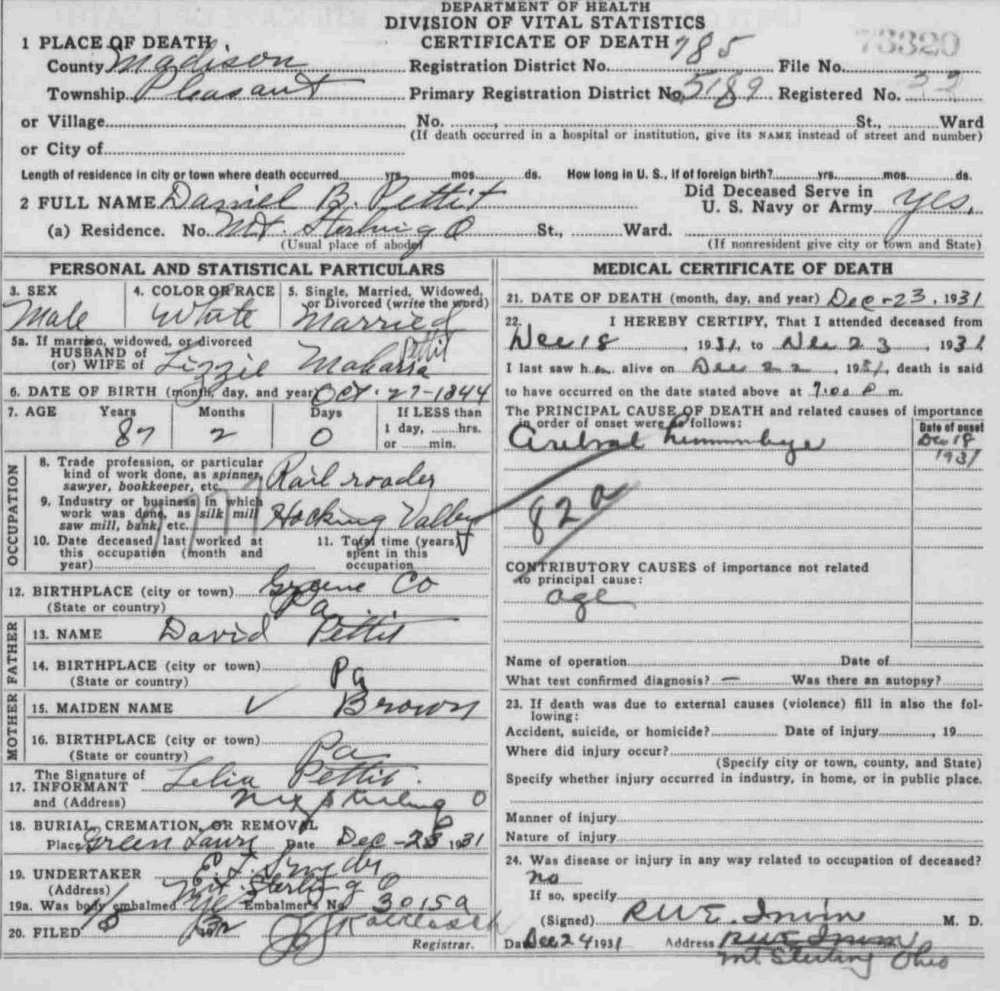 DEPARTMENT OF HEALTH
DIVISION OF VITAL STATISTICS
CERTIFICATE OF DEATH
73320
1 PLACE OF DEATH
County Madison Registration District No. 785 File No.
Township Pleasant Primary Registration District No. 5189 Registered No. 33
or Village No. , St., Ward
(If death occurred in a hospital or institution, give its NAME instead of street and number)
or City of
Length of residence in city or town where death occurred yrs. mos. ds. How long in U. S., if of foreign birth? yrs. mos. ds.
2 FULL NAME Daniel B. Pettit Did Deceased Serve in U. S. Navy or Army yes.
(a) Residence. No. Mt. Sterling O St., Ward.
(Usual place of abode) (If nonresident give city or town and State)
PERSONAL AND STATISTICAL PARTICULARS
3. SEX 4. COLOR OR RACE 5. Single, Married, Widowed, or Divorced (write the word)
Male White Married
5a. If married, widowed, or divorced
HUSBAND of
(or) WIFE of Lizzie Pettit
6. DATE OF BIRTH (month, day, and year) Oct. 27-1844
7. AGE Years Months Days If LESS than
1 day, hrs.
or min.
87 2 0
OCCUPATION
8. Trade profession, or particular
kind of work done, as spinner,
sawyer, bookkeeper, etc. Rail roader
9. Industry or business in which
work was done, as silk mill,
saw mill, bank, etc. Hocking Valley
10. Date deceased last worked at
this occupation (month and
year)
11. Total time (years)
spent in this
occupation
12. BIRTHPLACE (city or town) Greene Co
(State or country) Pa
FATHER
13. NAME David Pettit
14. BIRTHPLACE (city or town)
(State or country) Pa
MOTHER
15. MAIDEN NAME Brown
16. BIRTHPLACE (city or town)
(State or country) Pa
17. The Signature of
INFORMANT Lelia Pettit
and (Address) Sterling O
18. BURIAL, CREMATION, OR REMOVAL
Place Green Lawn Date Dec 1931
19. UNDERTAKER E. J. Snyder
(Address) Mt. Sterling O
19a. Was body embalmed Yes Embalmer's No 3015a
20. FILED
Registrar.
MEDICAL CERTIFICATE OF DEATH
21. DATE OF DEATH (month, day, and year) Dec-23, 1931
22. I HEREBY CERTIFY, That I attended deceased from
Dec 18, 1931, to Dec 23, 1931
I last saw h alive on Dec 22, 1931, death is said
to have occurred on the date stated above at 7:00 P m.
The PRINCIPAL CAUSE OF DEATH and related causes of importance
in order of onset were as follows:
Date of onset
Dec 18
1931
82a
CONTRIBUTORY CAUSES of importance not related
to principal cause:
age
Name of operation Date of
What test confirmed diagnosis? — Was there an autopsy?
23. If death was due to external causes (violence) fill in also the fol-
lowing:
Accident, suicide, or homicide? Date of injury , 19
Where did injury occur?
(Specify city or town, county, and State)
Specify whether injury occurred in industry, in home, or in public place.
Manner of injury
Nature of injury
24. Was disease or injury in any way related to occupation of deceased?
no
If so, specify
(Signed) R W E. Irwin M. D.
Date Dec 24 1931 Address R W E Irwin
Mt Sterling Ohio